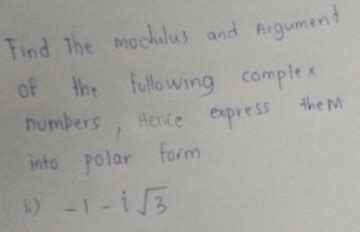 Find The modulus and Argument
of the following complex
numbers, Hence express them
into polar form
ii) -1 - i √3